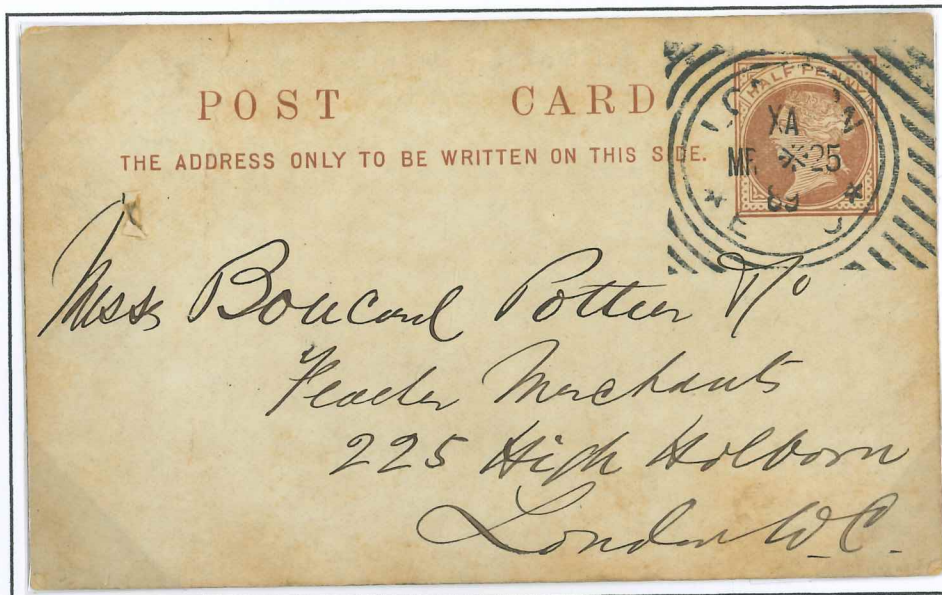 POST CARD
HALF PENNY
THE ADDRESS ONLY TO BE WRITTEN ON THIS SIDE.
LONDON
XA
MR 25
89
E
Messrs Boucard Pottier & Co
Feather Merchants
225 High Holborn
London W.C.